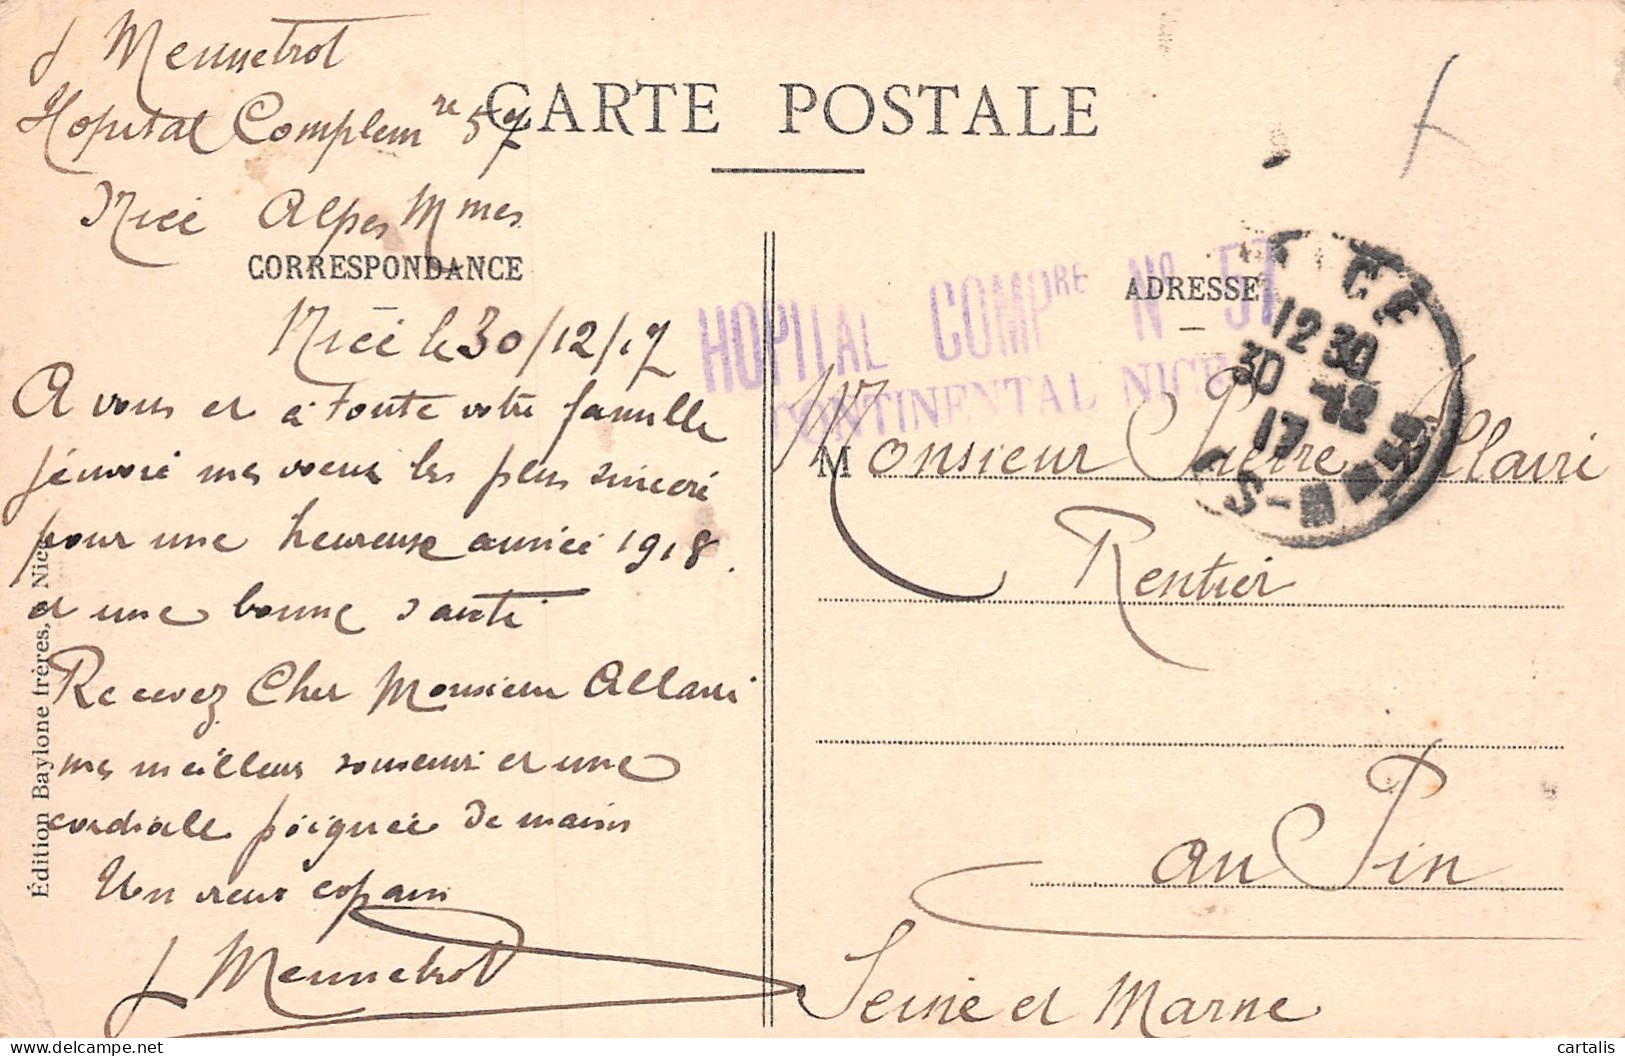 J Mennetrol
Hopital Complem re 57
CARTE POSTALE
Nice Alpes Mmes
CORRESPONDANCE
HOPITAL COMPRE No 57
CONTINENTAL NICE
ADRESSE
Nice le 30/12/17
NICE
12 30
30 -12
17
A vous et à toute votre famille
j'envoie mes voeux les plus sincere
pour une heureuse année 1918.
et une bonne santé
Recevez Cher Monsieur Allaire
mes meilleurs souvenirs et une
cordiale poignée de mains
Un vieux copain
J Mennetrol
Édition Baylone frères, Nice
M
Monsieur Pierre Allaire
Rentier
au Pin
Seine et Marne
cartalis